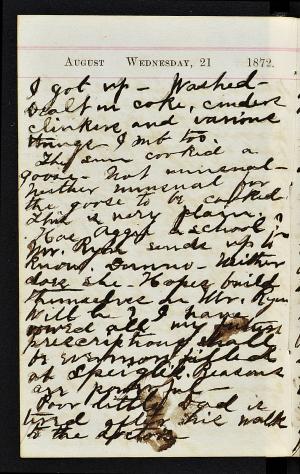 August Wednesday, 21 1872.
I got up - Washed -
Dealt in coke, cinders
clinkers and various
things I met too.
The sun cooked a
goose - Not unusual -
Neither unusual for
the goose to be cooked.
This is very plain.
Has Aggie a school?
Mr. Ryan sends up to
know. Dunno - Neither
does she - Hopes build
themselves on Mr. Ryan
Will he? I have
vowed all my future
prescriptions shall
be evermore filled
at Speigle. Reasons
are powerful -
Poor little dad is
tired after his walk
to the doctors